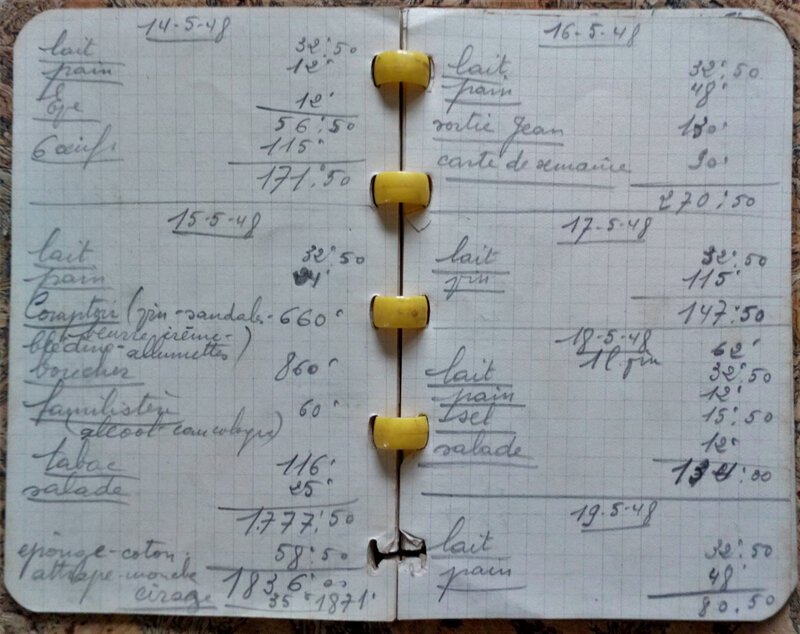 14-5-48
lait 32.50
pain 12
12
56.50
6 œufs 115
171.50
15-5-48
lait 32.50
pain
Comptoir (vin-sandales- 660
beurre crème-
blédine-allumettes)
boucher 860
familistère 60
(alcool-
tabac 116
salade 25
1777.50
éponge-coton. 58.50
attrape-mouche 1836.00
cirage 35 1871
16-5-48
lait 32.50
pain 48
sortie Jean
carte de semaine 90
270.50
17-5-48
lait 32.50
vin 115
147.50
18-5-48
1l. vin 62
lait 32.50
pain 12
sel 15.50
salade 12
134.00
19-5-48
lait 32.50
pain 48
80.50